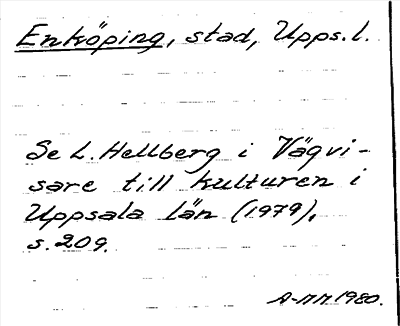 Enköping, stad, Upps.l.
Se L. Hellberg i Vägvi-
sare till kulturen i
Uppsala län (1979),
s. 209.
A-MM 1980.